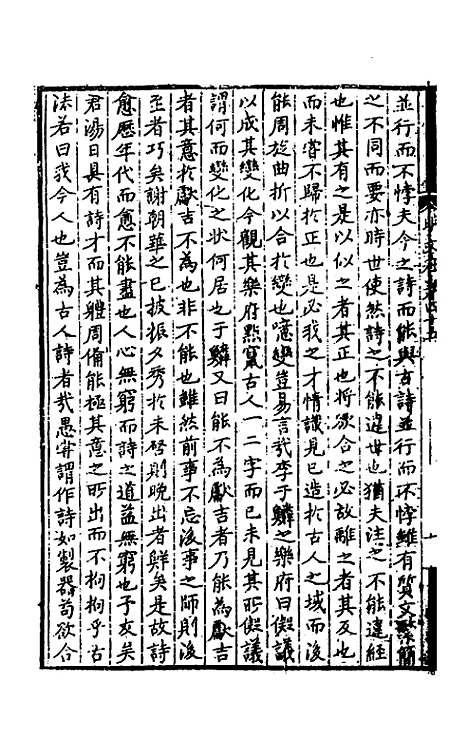 並行而不悖夫今之詩而能與古詩並行而不悖雖有質文繁簡
之不同而要亦時世使然詩之不能違世也猶夫注之不能違經
也惟其有之是以似之者其正也將欲合之必故離之者其反也
而未嘗不歸於正也是必我之才情識見已造於古人之域而後
能周旋曲折以合於變也噫變豈易言哉李于鱗之樂府曰儗議
以成其變化今觀其樂府點竄古人一二字而已未見其所儗議
謂何而變化之狀何居也于鱗又曰能不為獻吉者乃能為獻吉
者其意於獻吉不為也非不能也雖然前事不忘後事之師則後
至者巧矣謝朝華之已披振夕秀於未啓則晚出者鮮矣是故詩
愈歷年代而愈不能盡也人心無窮而詩之道益無窮也予友矣
君湯日具有詩才而其體周僃能極其意之所出而不拘拘乎古
法若曰我今人也豈為古人詩者哉愚嘗謂作詩如製器苟欲合